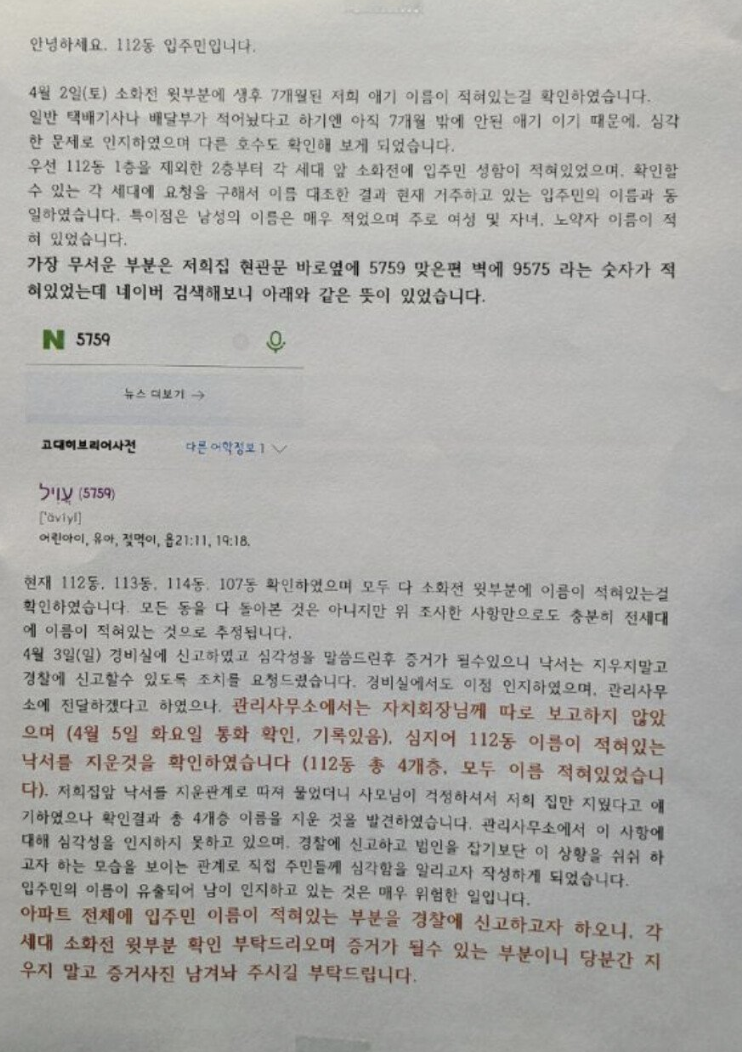 안녕하세요. 112동 입주민입니다.
4월 2일(토) 소화전 윗부분에 생후 7개월된 저희 애기 이름이 적혀있는걸 확인하였습니다.
일반 택배기사나 배달부가 적어놨다고 하기엔 아직 7개월 밖에 안된 애기 이기 때문에, 심각
한 문제로 인지하였으며 다른 호수도 확인해 보게 되었습니다.
우선 112동 1층을 제외한 2층부터 각 세대 앞 소화전에 입주민 성함이 적혀있었으며, 확인할
수 있는 각 세대에 요청을 구해서 이름 대조한 결과 현재 거주하고 있는 입주민의 이름과 동
일하였습니다. 특이점은 남성의 이름은 매우 적었으며 주로 여성 및 자녀, 노약자 이름이 적
혀 있었습니다.
가장 무서운 부분은 저희집 현관문 바로옆에 5759 맞은편 벽에 9575 라는 숫자가 적
혀있었는데 네이버 검색해보니 아래와 같은 뜻이 있었습니다.
N 5759
뉴스 더보기 →
고대히브리어사전 다른 어학정보 1
עֲוִיל (5759)
['ăvîyl]
어린아이, 유아, 젖먹이, 욥21:11, 19:18.
현재 112동, 113동, 114동, 107동 확인하였으며 모두 다 소화전 윗부분에 이름이 적혀있는걸
확인하였습니다. 모든 동을 다 돌아본 것은 아니지만 위 조사한 사항만으로도 충분히 전세대
에 이름이 적혀있는 것으로 추정됩니다.
4월 3일(일) 경비실에 신고하였고 심각성을 말씀드린후 증거가 될수있으니 낙서는 지우지말고
경찰에 신고할수 있도록 조치를 요청드렸습니다. 경비실에서도 이점 인지하였으며, 관리사무
소에 전달하겠다고 하였으나, 관리사무소에서는 자치회장님께 따로 보고하지 않았
으며 (4월 5일 화요일 통화 확인, 기록있음), 심지어 112동 이름이 적혀있는
낙서를 지운것을 확인하였습니다 (112동 총 4개층, 모두 이름 적혀있었습니
다). 저희집앞 낙서를 지운관계로 따져 물었더니 사모님이 걱정하셔서 저희 집만 지웠다고 얘
기하였으나 확인결과 총 4개층 이름을 지운 것을 발견하였습니다. 관리사무소에서 이 사항에
대해 심각성을 인지하지 못하고 있으며, 경찰에 신고하고 범인을 잡기보단 이 상황을 쉬쉬 하
고자 하는 모습을 보이는 관계로 직접 주민들께 심각함을 알리고자 작성하게 되었습니다.
입주민의 이름이 유출되어 남이 인지하고 있는 것은 매우 위험한 일입니다.
아파트 전체에 입주민 이름이 적혀있는 부분을 경찰에 신고하고자 하오니, 각
세대 소화전 윗부분 확인 부탁드리오며 증거가 될수 있는 부분이니 당분간 지
우지 말고 증거사진 남겨놔 주시길 부탁드립니다.